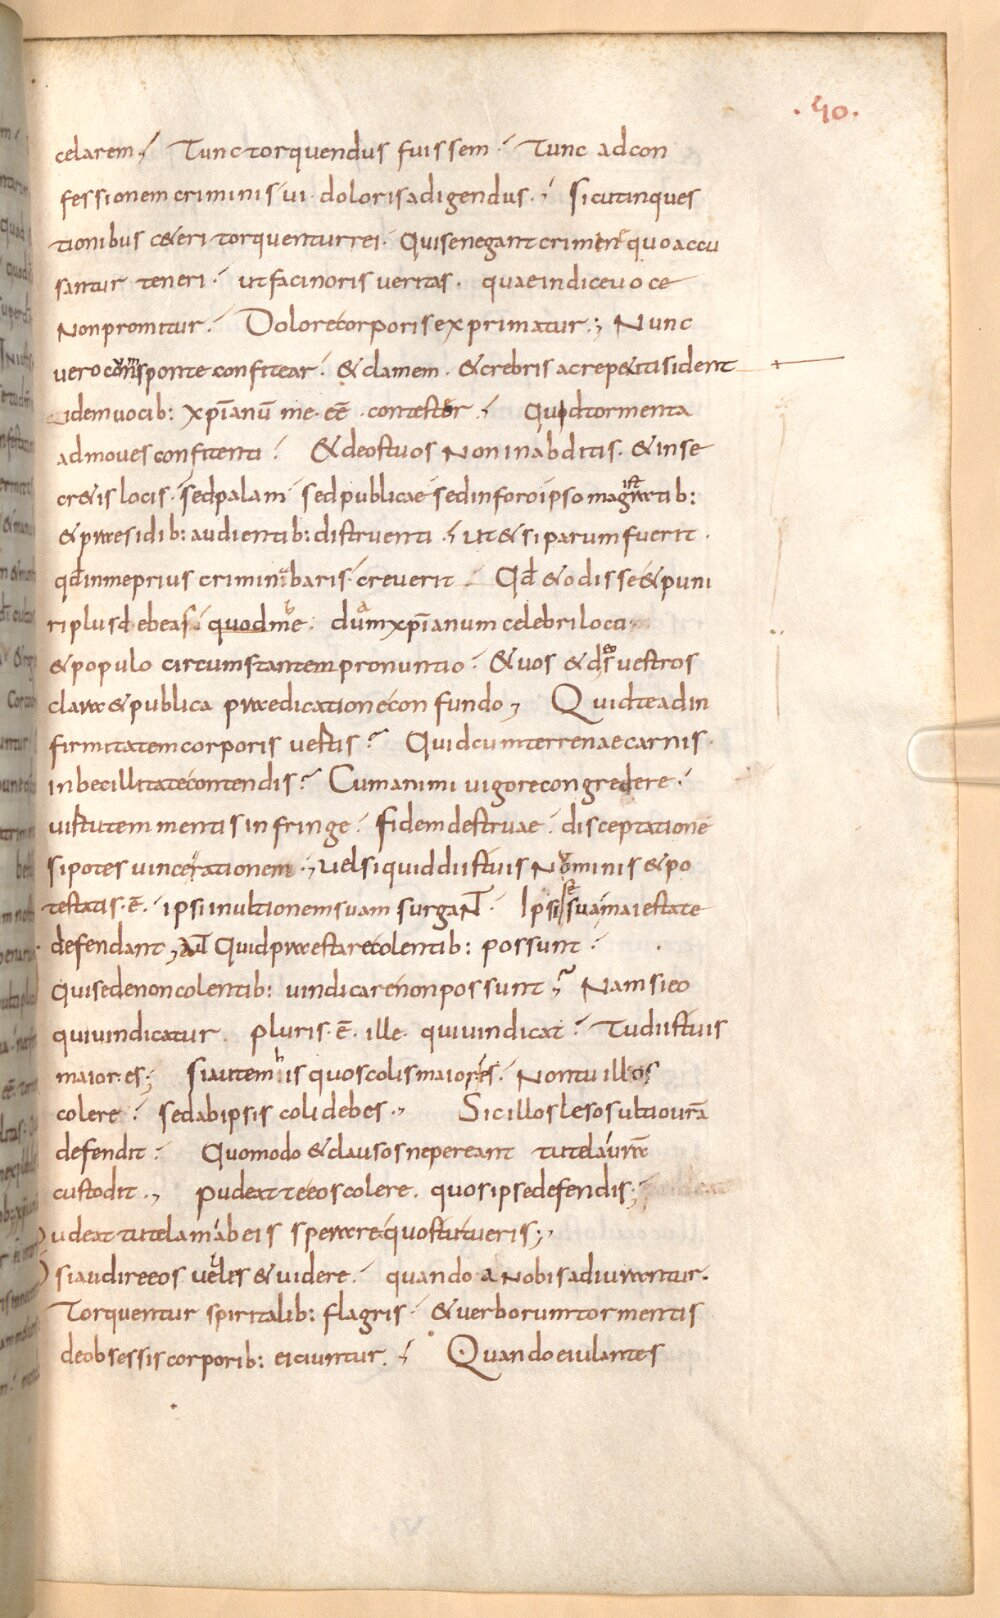 .40.
celarem; Tunc torquendus fuissem. Tunc ad con
fessionem criminis ui. doloris adigendus.; Sicut in ques
tionibus c&eri torquentur rei. Qui se negant crimen quo accu
santur teneri. ut facinoris ueritas. quae indice uoce
Non promitur. Dolore corporis exprimatur.; Nunc
uero sponte confitear. & clamem. & crebris ac rep&itis ident
idem uocib: xp̄ianū me. eē. contestor. Quid tormenta
admoues confitenti. & deos tuos Non in abditis. & in se
cr&is locis. sed palam sed publicae sed in foro ipso magistratib:
& praesidib: audientib: distruenti. ut & si parum fuerit.
qd̄ in me prius criminabaris creuerit. Qd̄ & odisse & puni
ri plus debeas quod me. dum xp̄ianum celebri loco
& populo circumstantem pronuntio. & uos & ds̄ uestros
clara & publica praedicatione confundo, Quid te ad in
firmitatem corporis uertis? Quid cum terrenae carnis.
inbecillitate contendis? Cum animi uigore congredere.
uirtutem mentis infringe. fidem destruae. disceptatione
si potes uince rationem., uel si quid diis tuis Nominis & po
testatis. ē. ipsi in ultionem suam surgant. Ipsi sua maiestate
defendant, aut Quid praestare colentib: possunt.
Qui se de non colentib: uindicare non possunt,? Nam si eo
qui uindicatur. pluris. ē. ille. qui uindicat. Tu diis tuis
maior. es; si autem his quos colis maior es. Non tu illos
colere. sed ab ipsis coli debes., Sic illos lesos ultio urā
defendit. Quomodo & clausos ne pereant tutela urā
custodit., pudeat te eos colere. quos ipse defendis;
udeat tutelam ab eis sperare quos tu tueris;,
O si audire eos uelles & uidere. quando a Nobis adiurantur.
Torquentur spiritalib: flagris. & uerborum tormentis
de obsessis corporib: eiciuntur.; Quando eiulantes